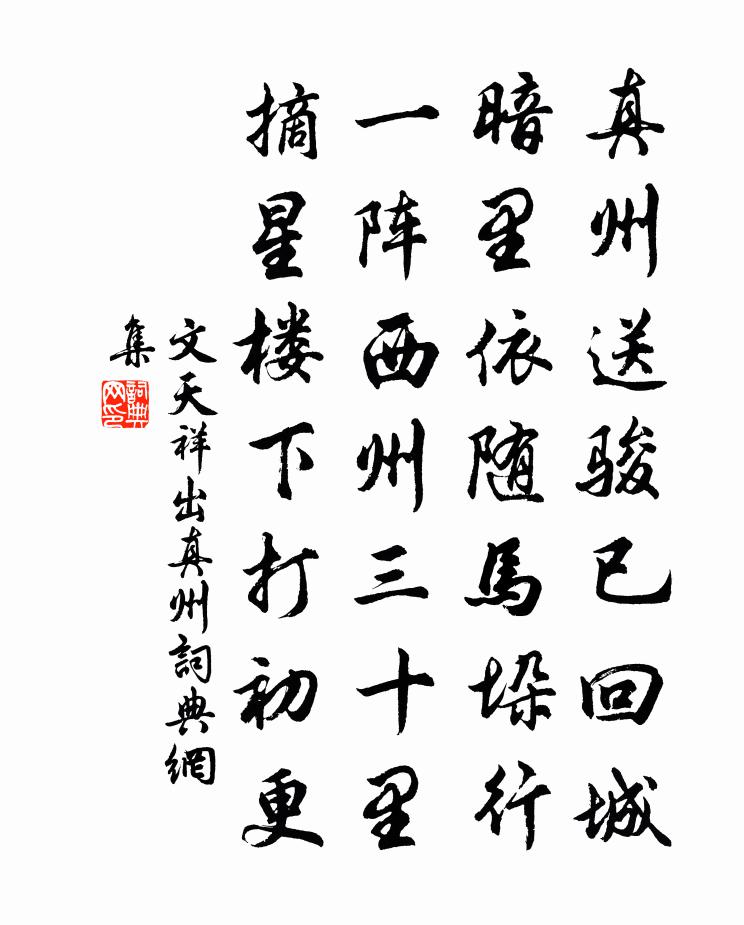 真州送骏已回城
暗里依随馬垛行
一阵西州三十里
摘星楼下打初更
文天祥出真州詞典網
集
詞典
网印